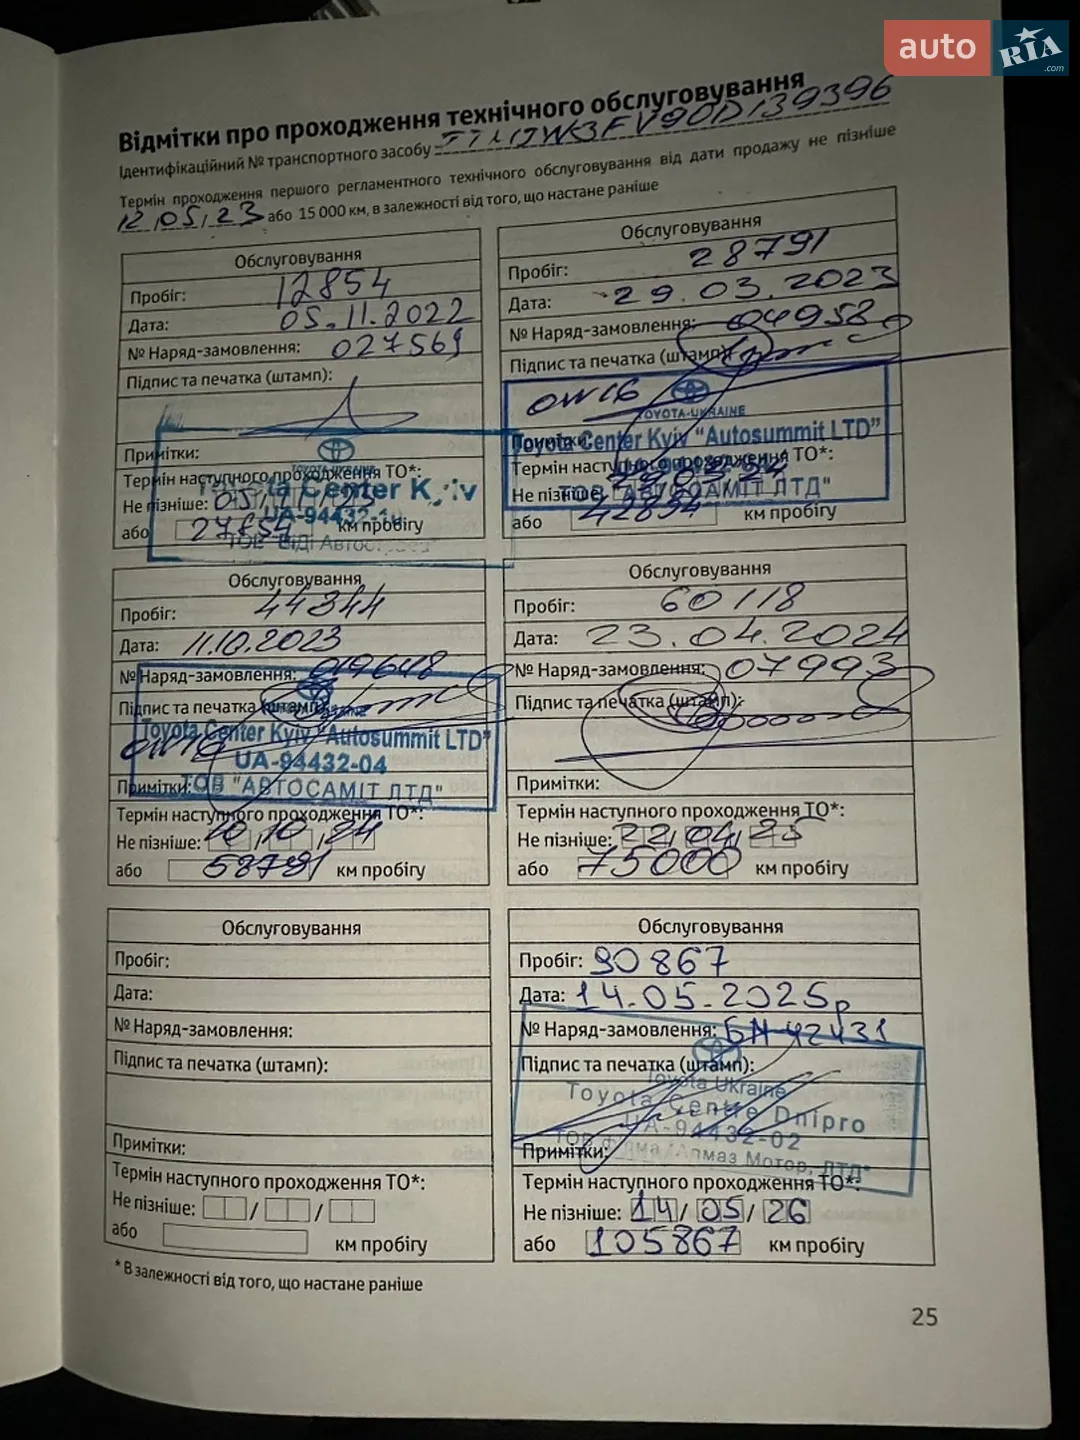 auto RIA.com
Відмітки про проходження технічного обслуговування
Ідентифікаційний № транспортного засобу
Термін проходження першого регламентного технічного обслуговування від дати продажу не пізніше
12.05.23 або 15 000 км, в залежності від того, що настане раніше
Обслуговування
Пробіг: 12854
Дата: 05.11.2022
№ Наряд-замовлення: 027569
Підпис та печатка (штамп):
Примітки:
TOYOTA-UKRAINE
Toyota Center Kyiv
UA-94432-
Термін наступного проходження ТО*:
Не пізніше: 05
або 27854 км пробігу
Обслуговування
Пробіг: 28791
Дата: 29.03.2023
№ Наряд-замовлення: 04958
Підпис та печатка (штамп):
0W16
TOYOTA-UKRAINE
Toyota Center Kyiv "Autosummit LTD"
ТОВ "АВТОСАМІТ ЛТД"
Термін наступного проходження ТО*:
Не пізніше:
або км пробігу
Обслуговування
Пробіг: 44344
Дата: 11.10.2023
№ Наряд-замовлення: 019648
Підпис та печатка (штамп):
Toyota Center Kyiv "Autosummit LTD"
UA-94432-04
ТОВ "АВТОСАМІТ ЛТД"
Примітки:
Термін наступного проходження ТО*:
Не пізніше: 10,10,24
або 58791 км пробігу
Обслуговування
Пробіг: 60118
Дата: 23.04.2024
№ Наряд-замовлення: 07993
Підпис та печатка (штамп):
Примітки:
Термін наступного проходження ТО*:
Не пізніше: 22,04,25
або 75000 км пробігу
Обслуговування
Пробіг:
Дата:
№ Наряд-замовлення:
Підпис та печатка (штамп):
Примітки:
Термін наступного проходження ТО*:
Не пізніше: / /
або км пробігу
Обслуговування
Пробіг: 90867
Дата: 14.05.2025р
№ Наряд-замовлення: БН42431
Підпис та печатка (штамп):
Toyota Ukraine
Toyota Centre Dnipro
UA-94432-02
ТОВ фірма "Алмаз Мотор, ЛТД"
Примітки:
Термін наступного проходження ТО*:
Не пізніше: 14/05/26
або 105867 км пробігу
* В залежності від того, що настане раніше
25